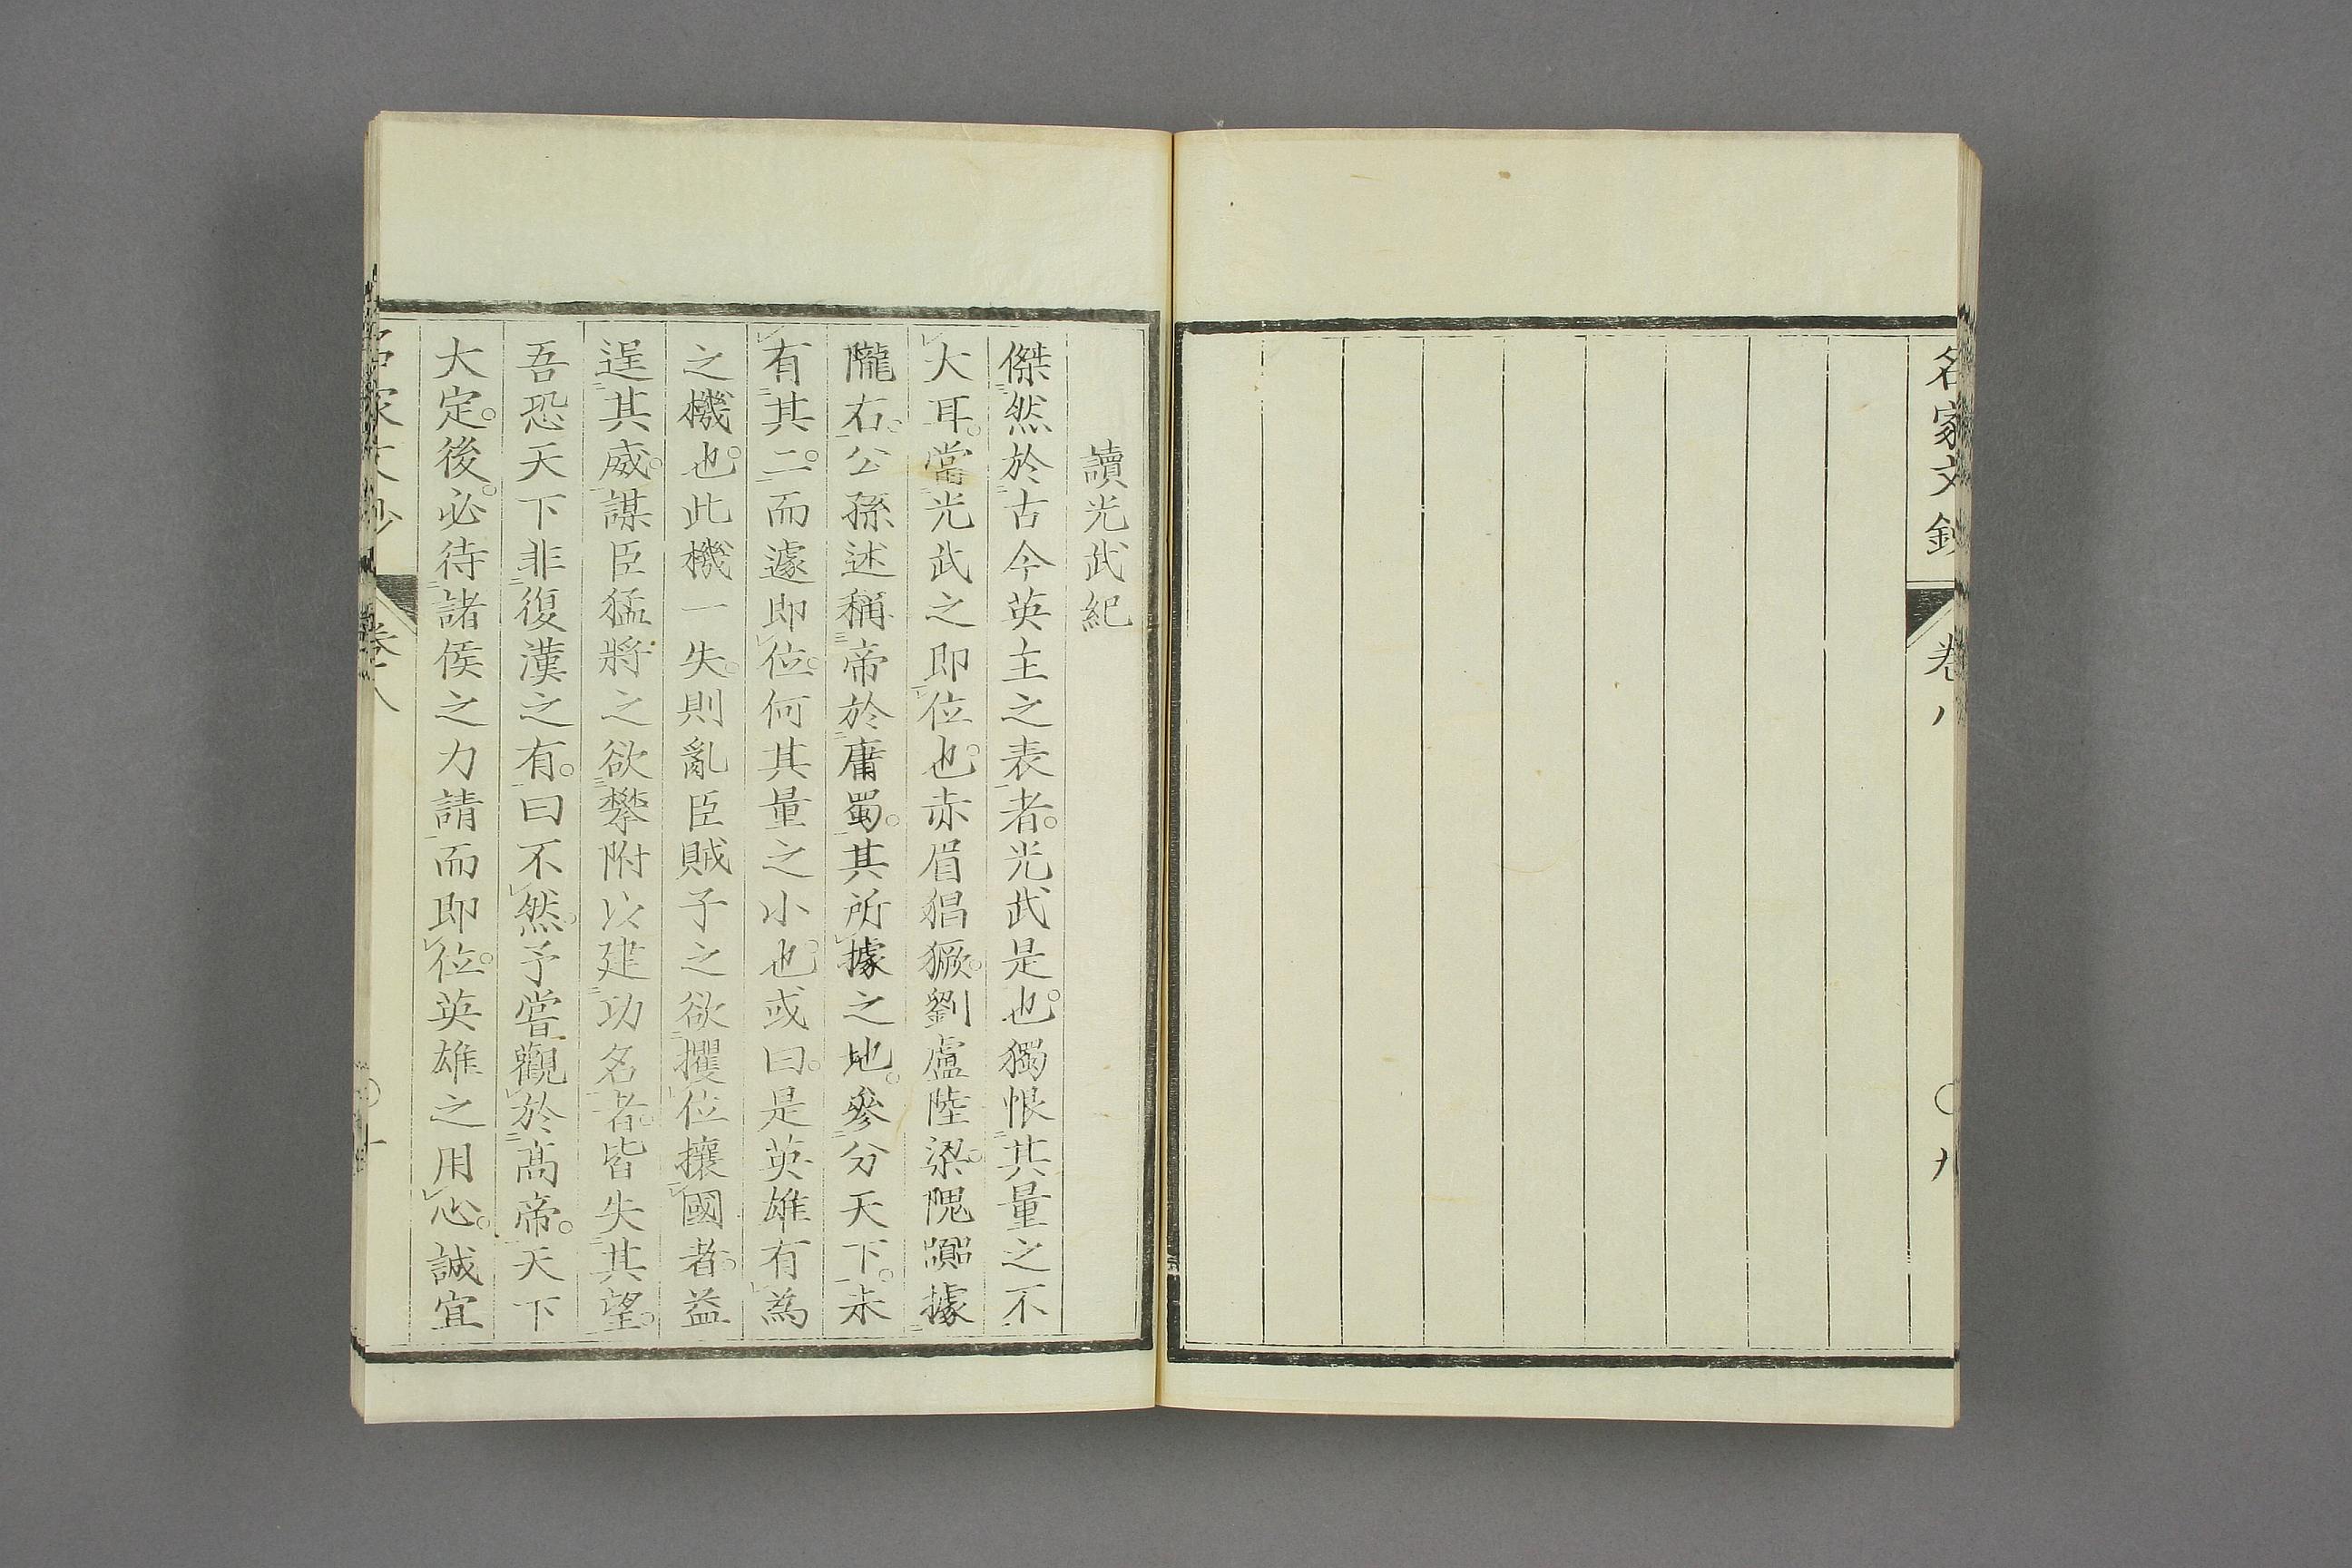 名家文鈔
卷八
九
讀光武紀
傑然於古今英主之表者。光武是也。獨恨其量之不
大耳。當光武之即位也。赤眉猖獗。劉盧陸梁。隗囂據
隴右。公孫述稱帝於庸蜀。其所據之地。參分天下。未
有其二。而遽即位。何其量之小也。或曰。是英雄有爲
之機也。此機一失。則亂臣賊子之欲攫位攘國者。益
逞其威。謀臣猛將之欲攀附以建功名者。皆失其望。
吾恐天下非復漢之有。曰不然。予嘗觀於高帝。天下
大定。後。必待諸侯之力請而即位。英雄之用心。誠宜
名家文鈔
卷八
十